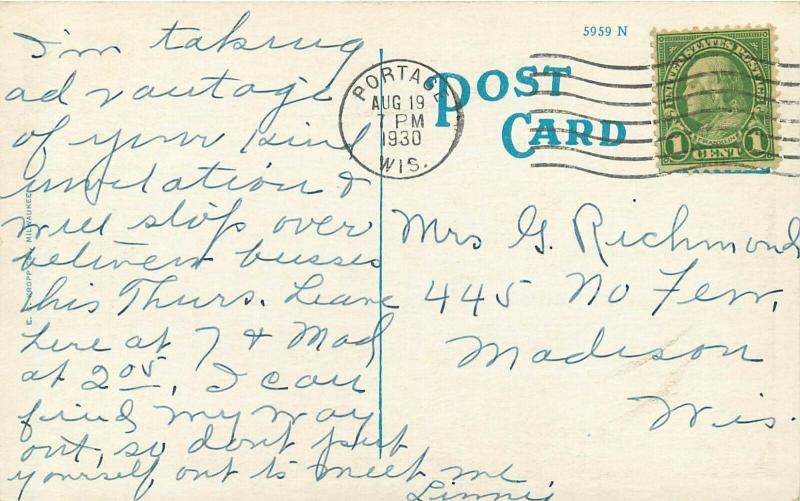 I'm taking
advantage
of your kind
invitation &
will stop over
between busses
this Thurs. Leave
here at 7 & Mad
at 2 05. I can
find my way
out, so don't put
yourself out to meet me
Linnie
E. C. KROPP CO., MILWAUKEE
5959 N
POST
CARD
PORTAGE
AUG 19
7 PM
1930
WIS.
UNITED STATES POSTAGE
FRANKLIN
1 CENT 1
Mrs G. Richmond
445 No Few,
Madison
Wis.